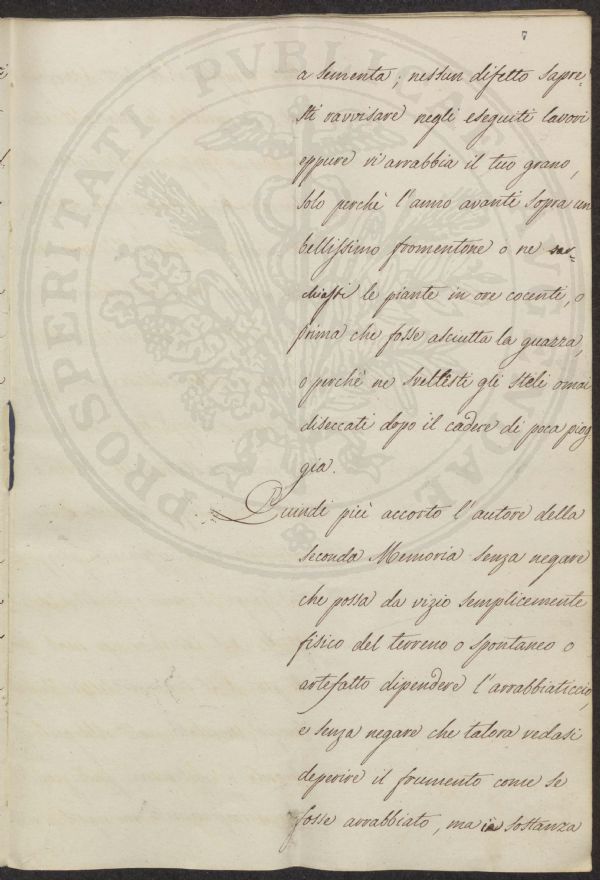 7
a sementa; nessun difetto sapre-
sti ravvisare negli eseguiti lavori
eppure vi arrabbia il tuo grano,
solo perchè l'anno avanti sopra un
bellissimo fromentone o ne sar=
chiasti le piante in ore cocenti, o
prima che fosse asciutta la guazza,
o perchè ne svellesti gli steli omai
diseccati dopo il cadere di poca piog
gia.
Quindi più accorto l'autore della
seconda Memoria senza negare
che possa da vizio semplicemente
fisico del terreno o spontaneo o
artefatto dipendere l'arrabbiaticcio,
e senza negare che talora vedasi
deperire il frumento come se
fosse arrabbiato, ma in sostanza
PROSPERITATI PVBLICAE